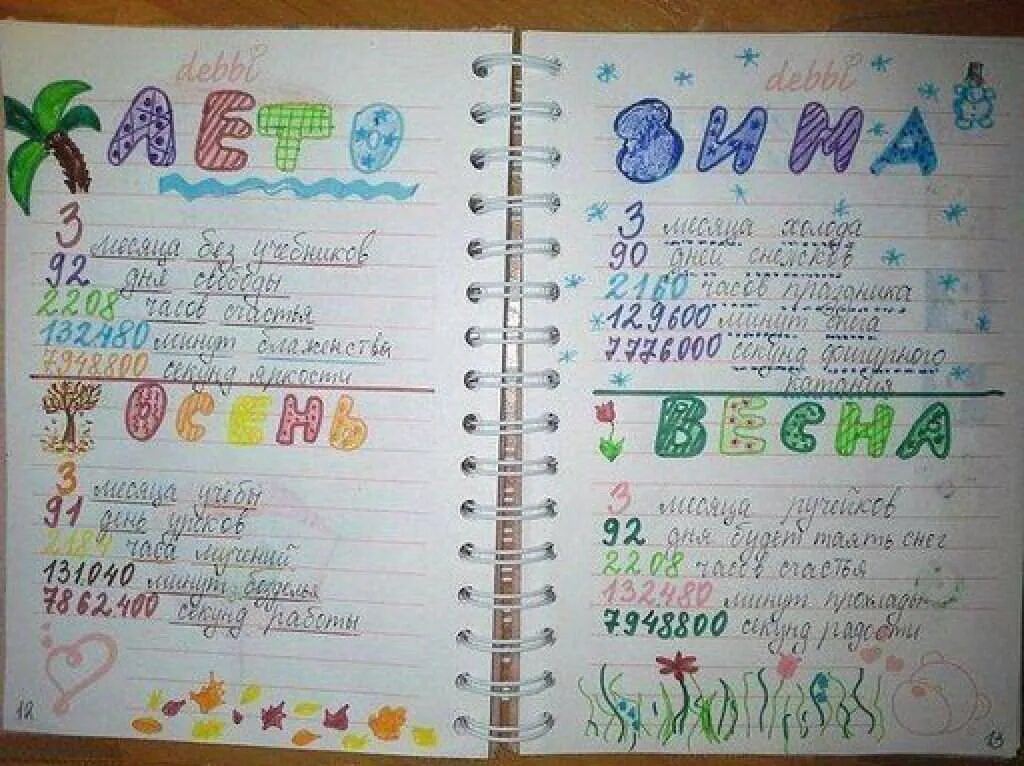 debbi
ЛЕТО
3
месяца без учебников
92 дня свободы
2208 часов счастья
132480 минут блаженства
7948800 секунд яркости
ОСЕНЬ
3 месяца учёбы
91 день уроков
2184 часа мучений
131.040 минут безделья
7862400 секунд работы
12
debbi
ЗИМА
3 месяца холода
90 дней снежков
2160 часов праздника
129600 минут снега
7776000 секунд дошкурного
катания
ВЕСНА
3 месяца ручейков
92 дня будет таять снег
2208 часов счастья
132480 минут прохлады
7948800 секунд радости
13